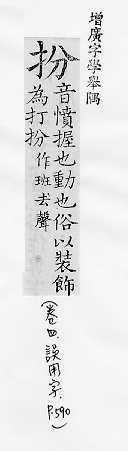 增廣字學舉隅
扮
音憤握也動也俗以裝飾
為打扮作班去聲
(卷四.誤用字.P.590)